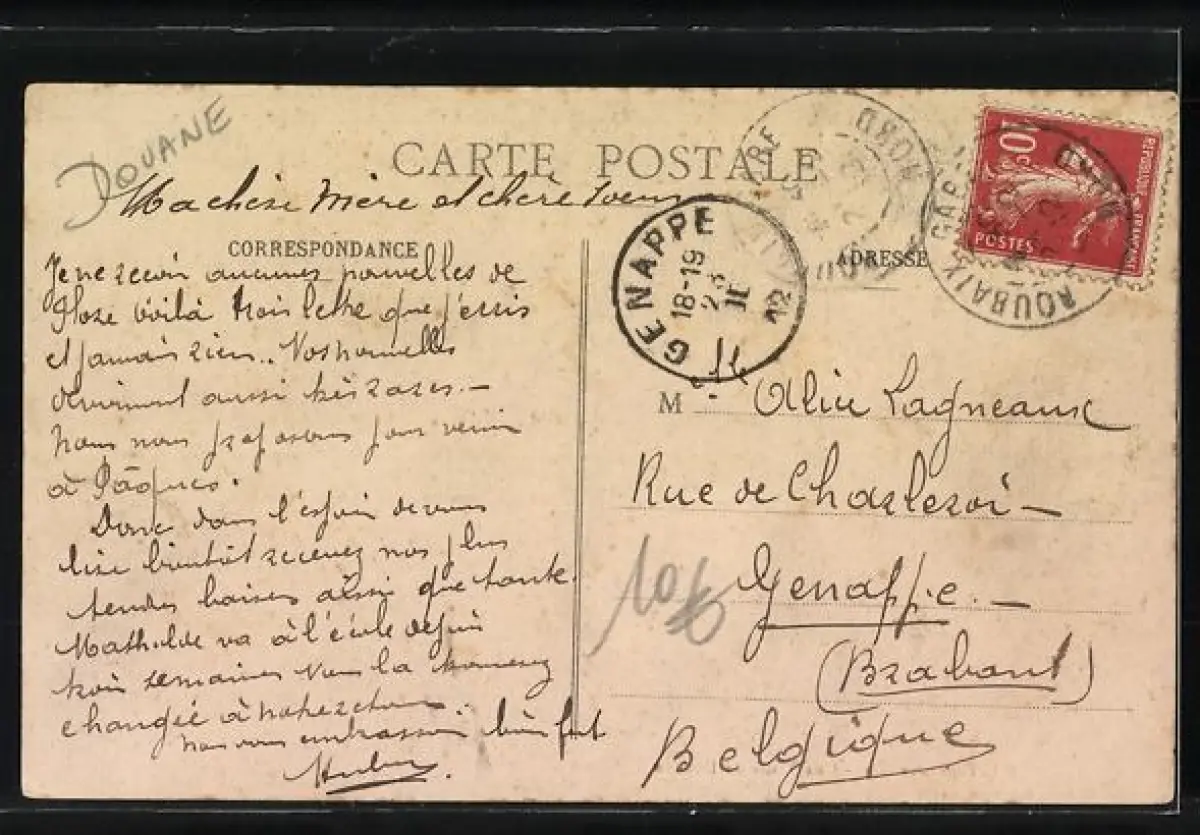 DOUANE
CARTE POSTALE
Ma chère mère et chère soeur
CORRESPONDANCE
ADRESSE
Je ne reçoit aucunes nouvelles de
voilà trois lettre que j'ecris
et jamais rien.. Vos nouvelles
deviennent aussi très rares. —
Nous nous proposons pour venir
à Pâques.
Donc dans l'espoir de vous
lire bientôt recevez nos plus
tendres baisers aussi que tante.
Mathilde va à l'école depuis
trois semaines vous la trouverez
changée à notre retour.
nous vous embrassons bien fort
Hubert.
GENAPPE
18-19
II
12
ROUBAIX GARE
NORD
10c
REPUBLIQUE FRANÇAISE
POSTES
M Alice Lagneaux
Rue de Charleroi —
Genappe. —
(Brabant)
Belgique